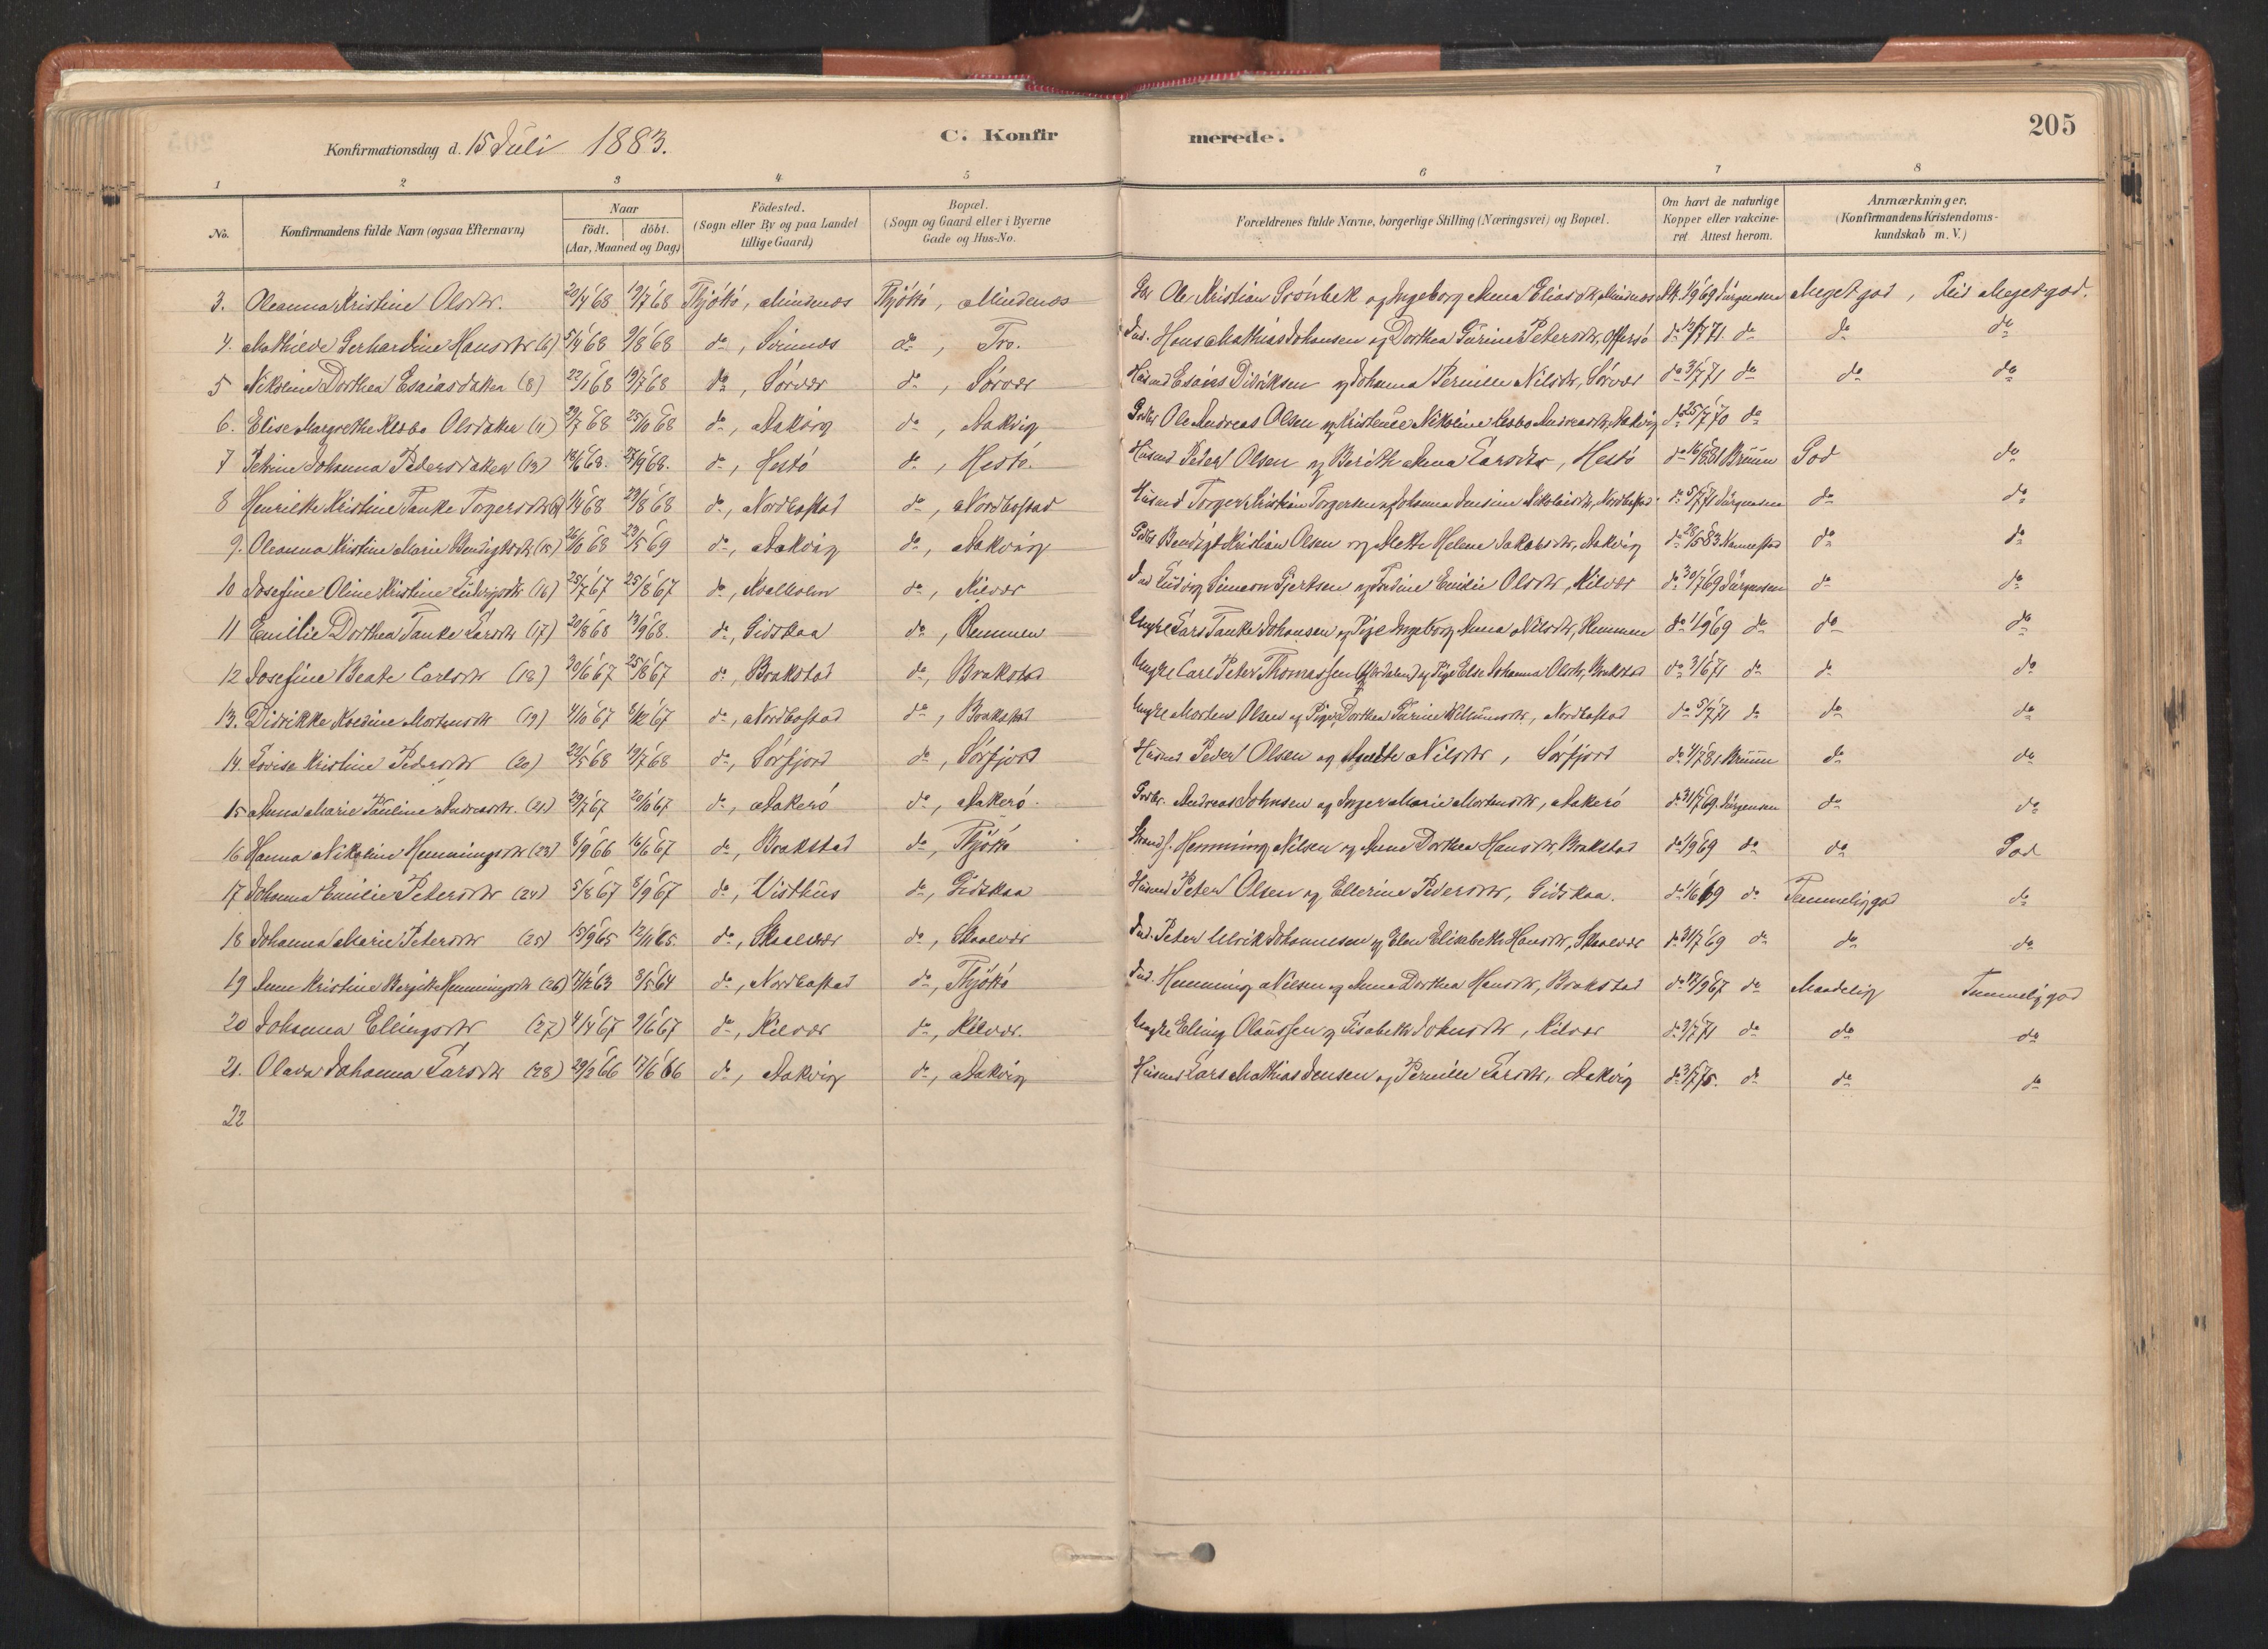 Konfirmationsdag d. 15 Juli 1883.
C. Konfir
merede.
205
1 2 3 4 5 6 7 8
No.
Konfirmandens fulde Navn (ogsaa Efternavn)
Naar
født. døbt.
(Aar, Maaned og Dag)
Födested.
(Sogn eller By og paa Landet
tillige Gaard)
Bopæl.
(Sogn og Gaard eller i Byerne
Gade og Hus-No.
Forældrenes fulde Navne, borgerlige Stilling (Næringsvei) og Bopæl.
Om havt de naturlige
Kopper eller vakcine-
ret. Attest herom.
Anmærkninger.
(Konfirmandens Kristendoms-
kundskab m. V.)
3. Oleanna Kristine Olsdtr. 20/4 68 19/7 68 Thjötö, Mindenæs Thjötö, Mindenæs Ole Kristian Grönbek og Ingeborg Anna Eliasdtr, Mindnæs 1/9 69 Jürgensen Meget god, Flid Meget god.
4. Mathilde Gerhardine Hansdtr (6) 5/4 68 9/8 68 do, do, Tro. Ind. Hans Mathias Johansen og Dorthea Karine Petersdtr, Offersö do 12/7 71. do do do
5 Nikoline Dorthea Esaiasdatter (8) 22/1 68 19/7 68 do, Sörvær do, Sörvær Husmd Esaias Didriksen og Johanna Pernille Nilsdtr, Sörvær do 3/7 71 do do do
6. Elise Margrethe Olsdatter (11) 29/7 68 25/10 68 do, Aakvig do, Aakvig Gbr Ole Andreas Olsen og Kristense Nikoline Andreasdtr, Aakvig do 25/7 70 do
7 Petrine Johanna Pedersdatter (13) 18/6 68. 27/9 68. do, Hestö do, Hestö. Husmd Peder Olsen og Berith Anna Larsdtr, Hestö do 16/6 81 Bruun God do
8 Henriette Kristine Tanke Torgersdtr 1/4 68 23/8 68 do, Nordbostad do, Nordbostad Husmd Torger Kristian Torgersen og Johanna Jensine Nikolaisdtr, Nordbostad do 5/7 71 Jürgensen do do
9. Oleanna Kristine Marie Bendigtsdtr (15) 26/10 68 23/5 69 do, Aakvig do, Aakvig Bendigt Kristian Olsen og Mette Helene Jakobsdtr, Aakvig do 28/5 83. do do
10 Josefine Oline Kristine Ludvigsdtr (16) 25/7 67 25/8 67 do, do, Kilvær Ind Ludvig Simeon Gjertsen og Emilie Olsdtr, Kilvær do 30/7 69 Jürgensen do do
11 Emilie Dorthea Tanke Larsdtr (17) 20/8 68 13/9 68. do, Gidskaa do, Remmen Ungkl Lars Tanke Johansen og Pige Ingeborg Anna Nilsdtr, Remmen do 1/9 69 do do do
12 Josefine Beate Carlsdtr (18) 20/6 67 25/8 67 do, Brakstad do, Brakstad Ungkl Carl Peter Thomassen og Pige Else Johanna Olsdtr, Brakstad do 3/6 71 do do do
13. Didrikke Mortensdtr (19) 4/10 67 8/12 67 do, Nordbostad do, Brakstad Ungkl Morten Olsen og Pige Dorthea Karine, Nordbostad do 5/7 71 do do do
14. Lovise Kristine Pedersdtr (20) 22/5 68 19/7 68 do, Sörfjord do, Sörfjord Husmd Peder Olsen og Nilsdtr, Sörfjord do 4/7 81 Bruun do do
15 Anna Marie Pauline Andreasdtr. (21) 29/7 67 20/10 67 do, Aakerö do, Aakerö. Gbr. Andreas Johnsen og Inger Marie Mortensdtr, Aakerö do 31/7 69. Jürgensen do do
16 Hanna Nikoline Hemmingsdtr (23) 8/9 66 16/6 67 do, Brakstad do, Thjötö Strands. Hemming Nilsen og Anna Dorthea Hansdtr, Brakstad do 1/9 69 do do God
17 Johanna Emilie Petersdtr (24) 5/8 67 8/9 67 do, Visthus do, Gidskaa Husmd Peter Olsen og Ellerine Pedersdtr, Gidskaa. do 1/6 69 do Temmelig god do
18 Johanna Marie Petersdtr (25) 15/9 65 12/11 65. do, Skaalvær do, Skaalvær Ind. Peter Ulrik Johannesen og Elen Elisabeth Hansdtr, Skaalvær do 31/7 69 do do do
19 Anne Kristine Bergitte Hemmingsdtr (26) 17/12 63 8/5 64 do, Nordbostad do, Thjötö Ind. Hemming Nilsen og Anna Dorthea Hansdtr, Brakstad do 17/9 67 do Maadelig Temmelig god
20 Johanna Ellingsdtr (27) 4/4 67 9/6 67 do, Kilvær do, Kilvær. Ungkl Elling Olaussen og Lisabeth Johnsdtr, Kilvær do 3/7 71 do do do
21. Olava Johanna Larsdtr (28) 29/3 66 17/6 66 do, Aakvig do, Aakvig Husmd Lars Mathias Jensen og Pernille Larsdtr, Aakvig do 3/7 75. do do do
22